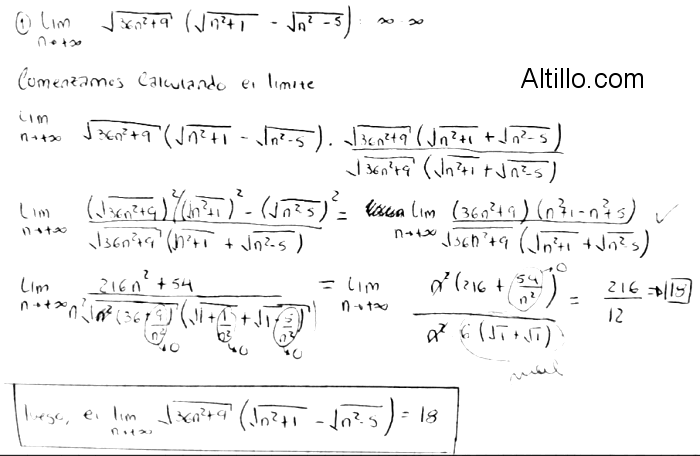 ① lim n→+∞ √(36n²+9) (√(n²+1) - √(n²-5)) : ∞·∞
Altillo.com
Comenzamos Calculando el limite
lim n→+∞ √(36n²+9) (√(n²+1) - √(n²-5)) · √(36n²+9) (√(n²+1) + √(n²-5)) / √(36n²+9) (√(n²+1) + √(n²-5))
lim n→+∞ (√(36n²+9))² (√(n²+1)² - (√(n²-5))² / √(36n²+9) (√(n²+1) + √(n²-5)) = lim n→+∞ (36n²+9) (n²+1-n²+5) / √(36n²+9) (√(n²+1) + √(n²-5)) ✓
lim n→+∞ 216n² + 54 / n²√(n²(36+9/n²)) (√(1+1/n²) + √(1-5/n²)) →0 →0 →0 = lim n→+∞ n²(216 + 54/n²) →0 / n² 6(√1 + √1) = 216/12 ⇒ 18
luego, el lim n→+∞ √(36n²+9) (√(n²+1) - √(n²-5)) = 18